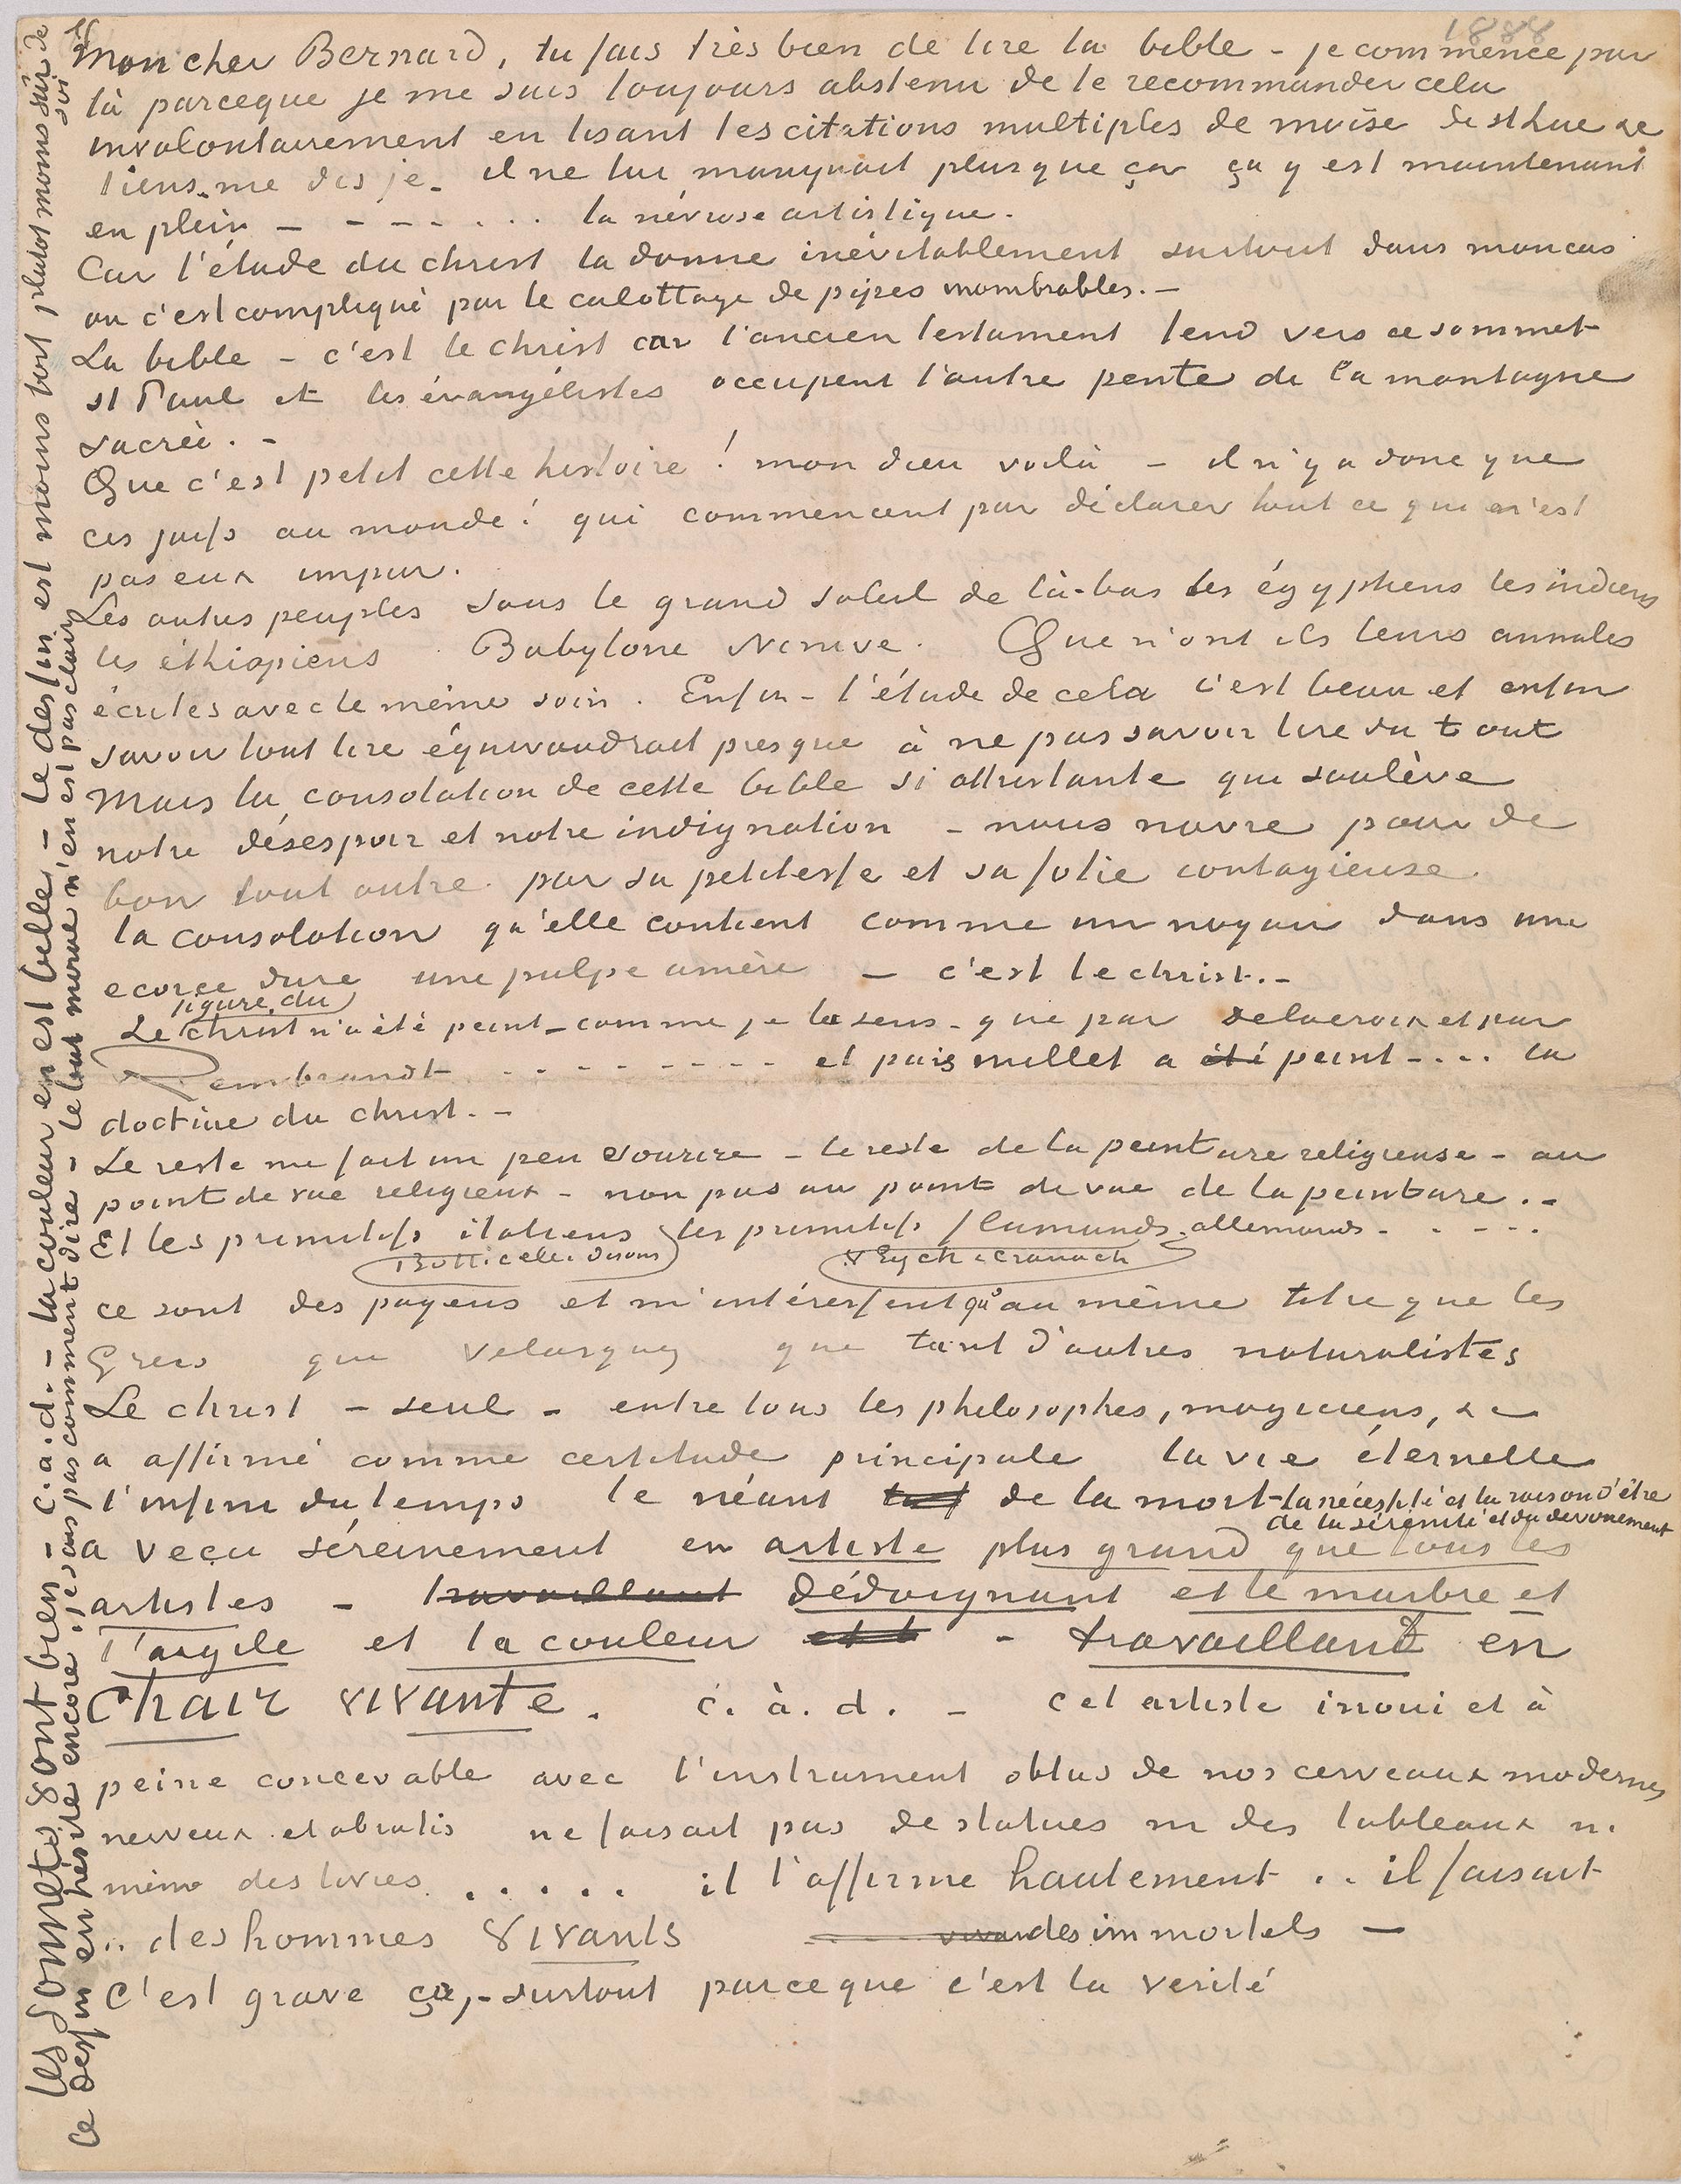 1888
Mon cher Bernard, tu fais très bien de lire la bible – je commence par
là parceque je me suis toujours abstenu de te recommander cela
involontairement en lisant tes citations multiples de moïse de st Luc &c
tiens, me dis je – il ne lui manquait plus que ça ça y est maintenant
en plein – – – – . . . la névrose artistique.
Car l'étude du christ la donne inévitablement surtout dans mon cas
ou c'est compliqué par le culottage de pipes inombrables. –
La bible – c'est le christ car l'ancien testament tend vers ce sommet
st Paul et les évangélistes occupent l'autre pente de la montagne
sacrée. –
Que c'est petit cette histoire! mon dieu voila – il n'y a donc que
ces juifs au monde! qui commencent par déclarer tout ce qui n'est
pas eux impur.
Les autres peuples sous le grand soleil de là-bas les égyptiens les indiens
les éthiopiens Babylone Ninive. Que n'ont ils leurs annales
écrites avec le même soin. Enfin – l'étude de cela c'est beau et enfin
savoir tout lire équivaudrait presque à ne pas savoir lire du tout
Mais la consolation de cette bible si attristante qui soulève
notre désespoir et notre indignation – nous navre pour de
bon tout outre par sa petitesse et sa folie contagieuse
la consolation qu'elle contient comme un noyau dans une
ecorce dure une pulpe amère – c'est le christ. –
figure du
Le christ n'a été peint – comme je le sens – que par Delacroix et par
Rembrandt . . . . . . . . . et puis millet a été peint – . . . la
doctrine du christ. –
Le reste me fait un peu sourire – le reste de la peinture religieuse – au
point de vue religieux – non pas au point de vue de la peinture. –
Et les primitifs italiens les primitifs flamands, allemands – . . – – .
Botticelli disons V Eyck & Cranach
ce sont des payens et m'intéressent qu'au même titre que les
Grecs que Velasquez que tant d'autres naturalistes
Le christ – seul – entre tous les philosophes, magiciens, &c
a affirmé comme certitude principale la vie éternelle
l'infini du temps le néant de la mort – la nécessité et la raison d'être
de la sérénité et du dévouement
a veçu séreinement en artiste plus grand que tous les
artistes – travaillant dédaignant et le marbre et
l'argile et la couleur – travaillant en
chair vivante. c. à. d. – cet artiste inoui et à
peine concevable avec l'instrument obtus de nos cerveaux modernes
nerveux et abrutis ne faisait pas de statues ni des tableaux ni
même des livres . . . . . il l'affirme hautement . . il faisait
. . des hommes vivants des immortels –
C'est grave ça, – surtout parceque c'est la verité
les sonnets sont bien – c. a. d. – la couleur en est belle – le dessin est moins fort plutot moins sûr de soi
ce dessin en hésite encore, je sais pas comment dire – le but moral n'en est pas clair